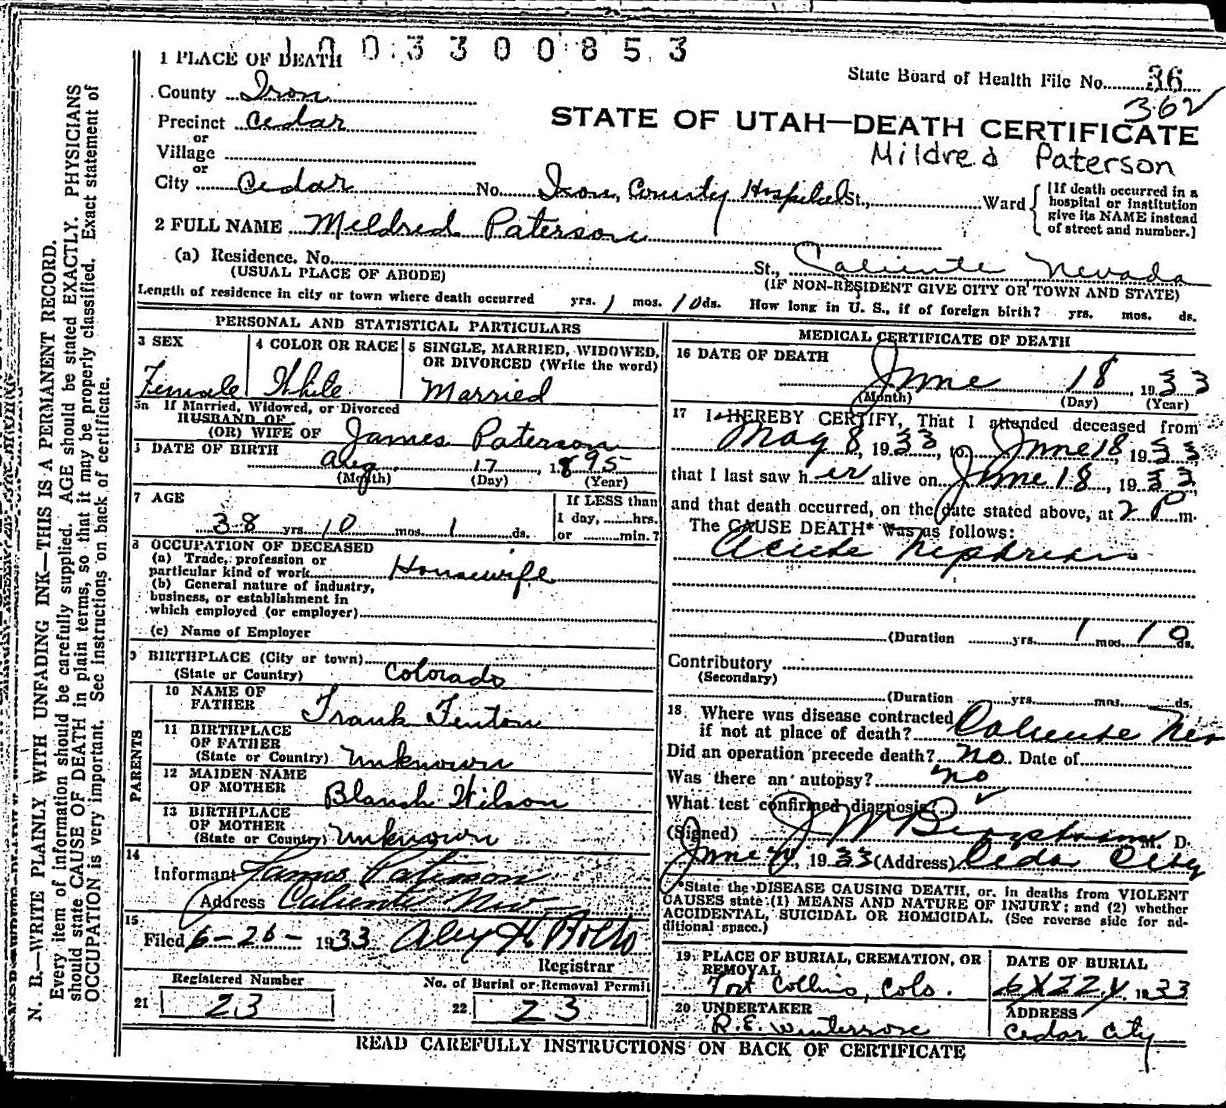 1003300853
1 PLACE OF DEATH
State Board of Health File No. 36
362
County Iron
Precinct Cedar
or
Village
or
City Cedar No. Iron County Hospital St., Ward
[If death occurred in a
hospital or institution
give its NAME instead
of street and number.]
STATE OF UTAH—DEATH CERTIFICATE
Mildred Paterson
2 FULL NAME Mildred Paterson
(a) Residence, No. St., Caliente Nevada
(USUAL PLACE OF ABODE) (IF NON-RESIDENT GIVE CITY OR TOWN AND STATE)
Length of residence in city or town where death occurred yrs. 1 mos. 10 ds. How long in U. S., if of foreign birth? yrs. mos. ds.
PERSONAL AND STATISTICAL PARTICULARS
3 SEX
Female
4 COLOR OR RACE
White
5 SINGLE, MARRIED, WIDOWED,
OR DIVORCED (Write the word)
Married
5a If Married, Widowed, or Divorced
HUSBAND OF
(OR) WIFE OF James Paterson
6 DATE OF BIRTH
Aug. 17, 1895
(Month) (Day) (Year)
7 AGE
38 yrs. 10 mos. 1 ds.
If LESS than
1 day, hrs.
or min.?
8 OCCUPATION OF DECEASED
(a) Trade, profession or
particular kind of work Housewife
(b) General nature of industry,
business, or establishment in
which employed (or employer)
(c) Name of Employer
9 BIRTHPLACE (City or town)
(State or Country) Colorado
PARENTS
10 NAME OF
FATHER Frank Fenton
11 BIRTHPLACE
OF FATHER
(State or Country) Unknown
12 MAIDEN NAME
OF MOTHER Blanch Wilson
13 BIRTHPLACE
OF MOTHER
(State or Country) Unknown
14
Informant James Paterson
Address Caliente Nev.
15
Filed 6-26- 1933
Registrar
Registered Number
21 23
No. of Burial or Removal Permit
22 23
MEDICAL CERTIFICATE OF DEATH
16 DATE OF DEATH
June 18, 1933
(Month) (Day) (Year)
17 I HEREBY CERTIFY, That I attended deceased from
May 8, 1933, to June 18, 1933
that I last saw her alive on June 18, 1933
and that death occurred, on the date stated above, at 2 P m.
The CAUSE DEATH* was as follows:
Acute Nephritis
(Duration yrs. 1 mos. 10 ds.
Contributory
(Secondary)
(Duration yrs. mos. ds.
18 Where was disease contracted
if not at place of death? Caliente Nev
Did an operation precede death? no Date of
Was there an autopsy? no
What test confirmed diagnosis
(Signed) M. D.
June 1933 (Address) Cedar City
*State the DISEASE CAUSING DEATH, or in deaths from VIOLENT
CAUSES state (1) MEANS AND NATURE OF INJURY; and (2) whether
ACCIDENTAL, SUICIDAL OR HOMICIDAL. (See reverse side for ad-
ditional space.)
19 PLACE OF BURIAL, CREMATION, OR
REMOVAL
Fort Collins, Colo.
DATE OF BURIAL
6 22 1933
20 UNDERTAKER
R.E. Winterrose
ADDRESS
Cedar City
READ CAREFULLY INSTRUCTIONS ON BACK OF CERTIFICATE
N. B.—WRITE PLAINLY WITH UNFADING INK—THIS IS A PERMANENT RECORD.
Every item of information should be carefully supplied. AGE should be stated EXACTLY. PHYSICIANS
should state CAUSE OF DEATH in plain terms, so that it may be properly classified. Exact statement of
OCCUPATION is very important. See instructions on back of certificate.